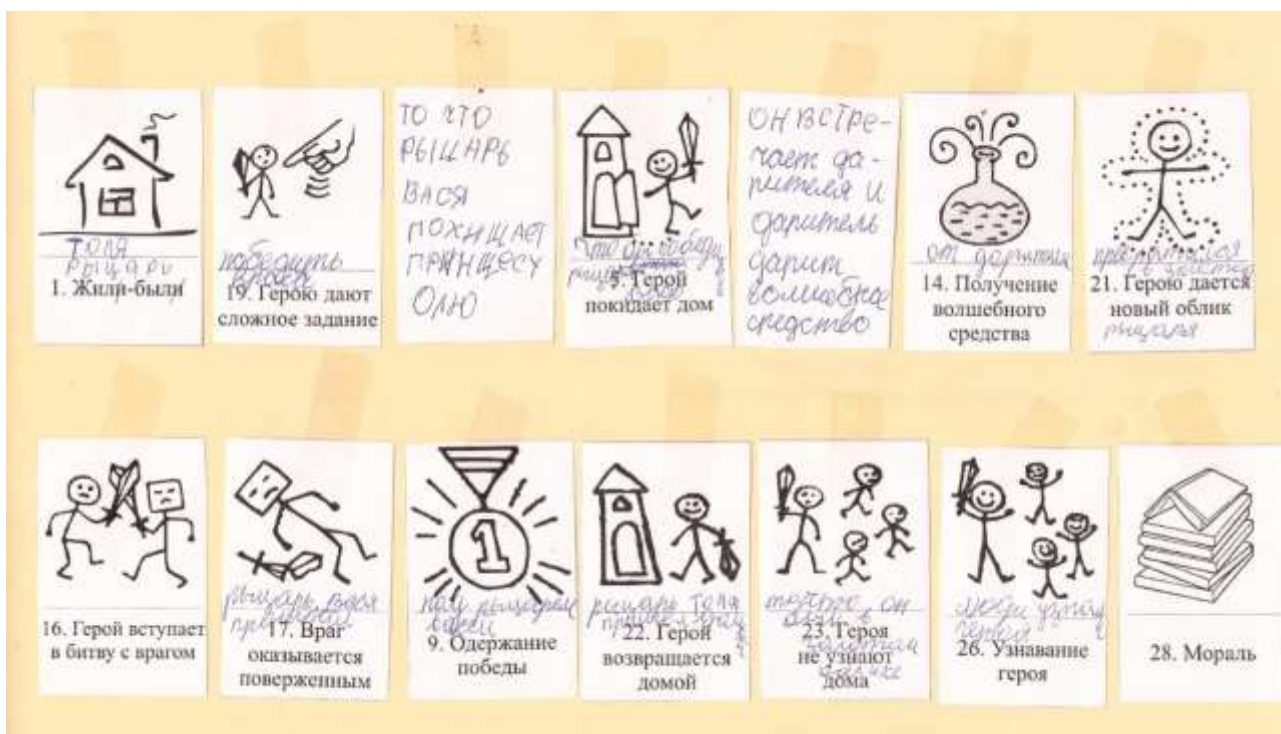 ТОЛЯ
РЫЦАРЬ
1. Жили-были
победить
19. Герою дают
сложное задание
ТО ЧТО
РЫЦАРЬ
ВАСЯ
ПОХИЩАЕТ
ПРИНЦЕСУ
ОЛЮ
5. Герой
покидает дом
ОН ВСТРЕ-
чает да-
рителя и
даритель
дарит
волшебное
средство
от дарителя
14. Получение
волшебного
средства
превратился
21. Герою дается
новый облик
рыцаря
16. Герой вступает
в битву с врагом
рыцарь Вася
17. Враг
оказывается
поверженным
над рыцарем
Васей
9. Одержание
победы
рыцарь Толя
22. Герой
возвращается
домой
он
23. Героя
не узнают
дома
люди узнали
героя
26. Узнавание
героя
28. Мораль